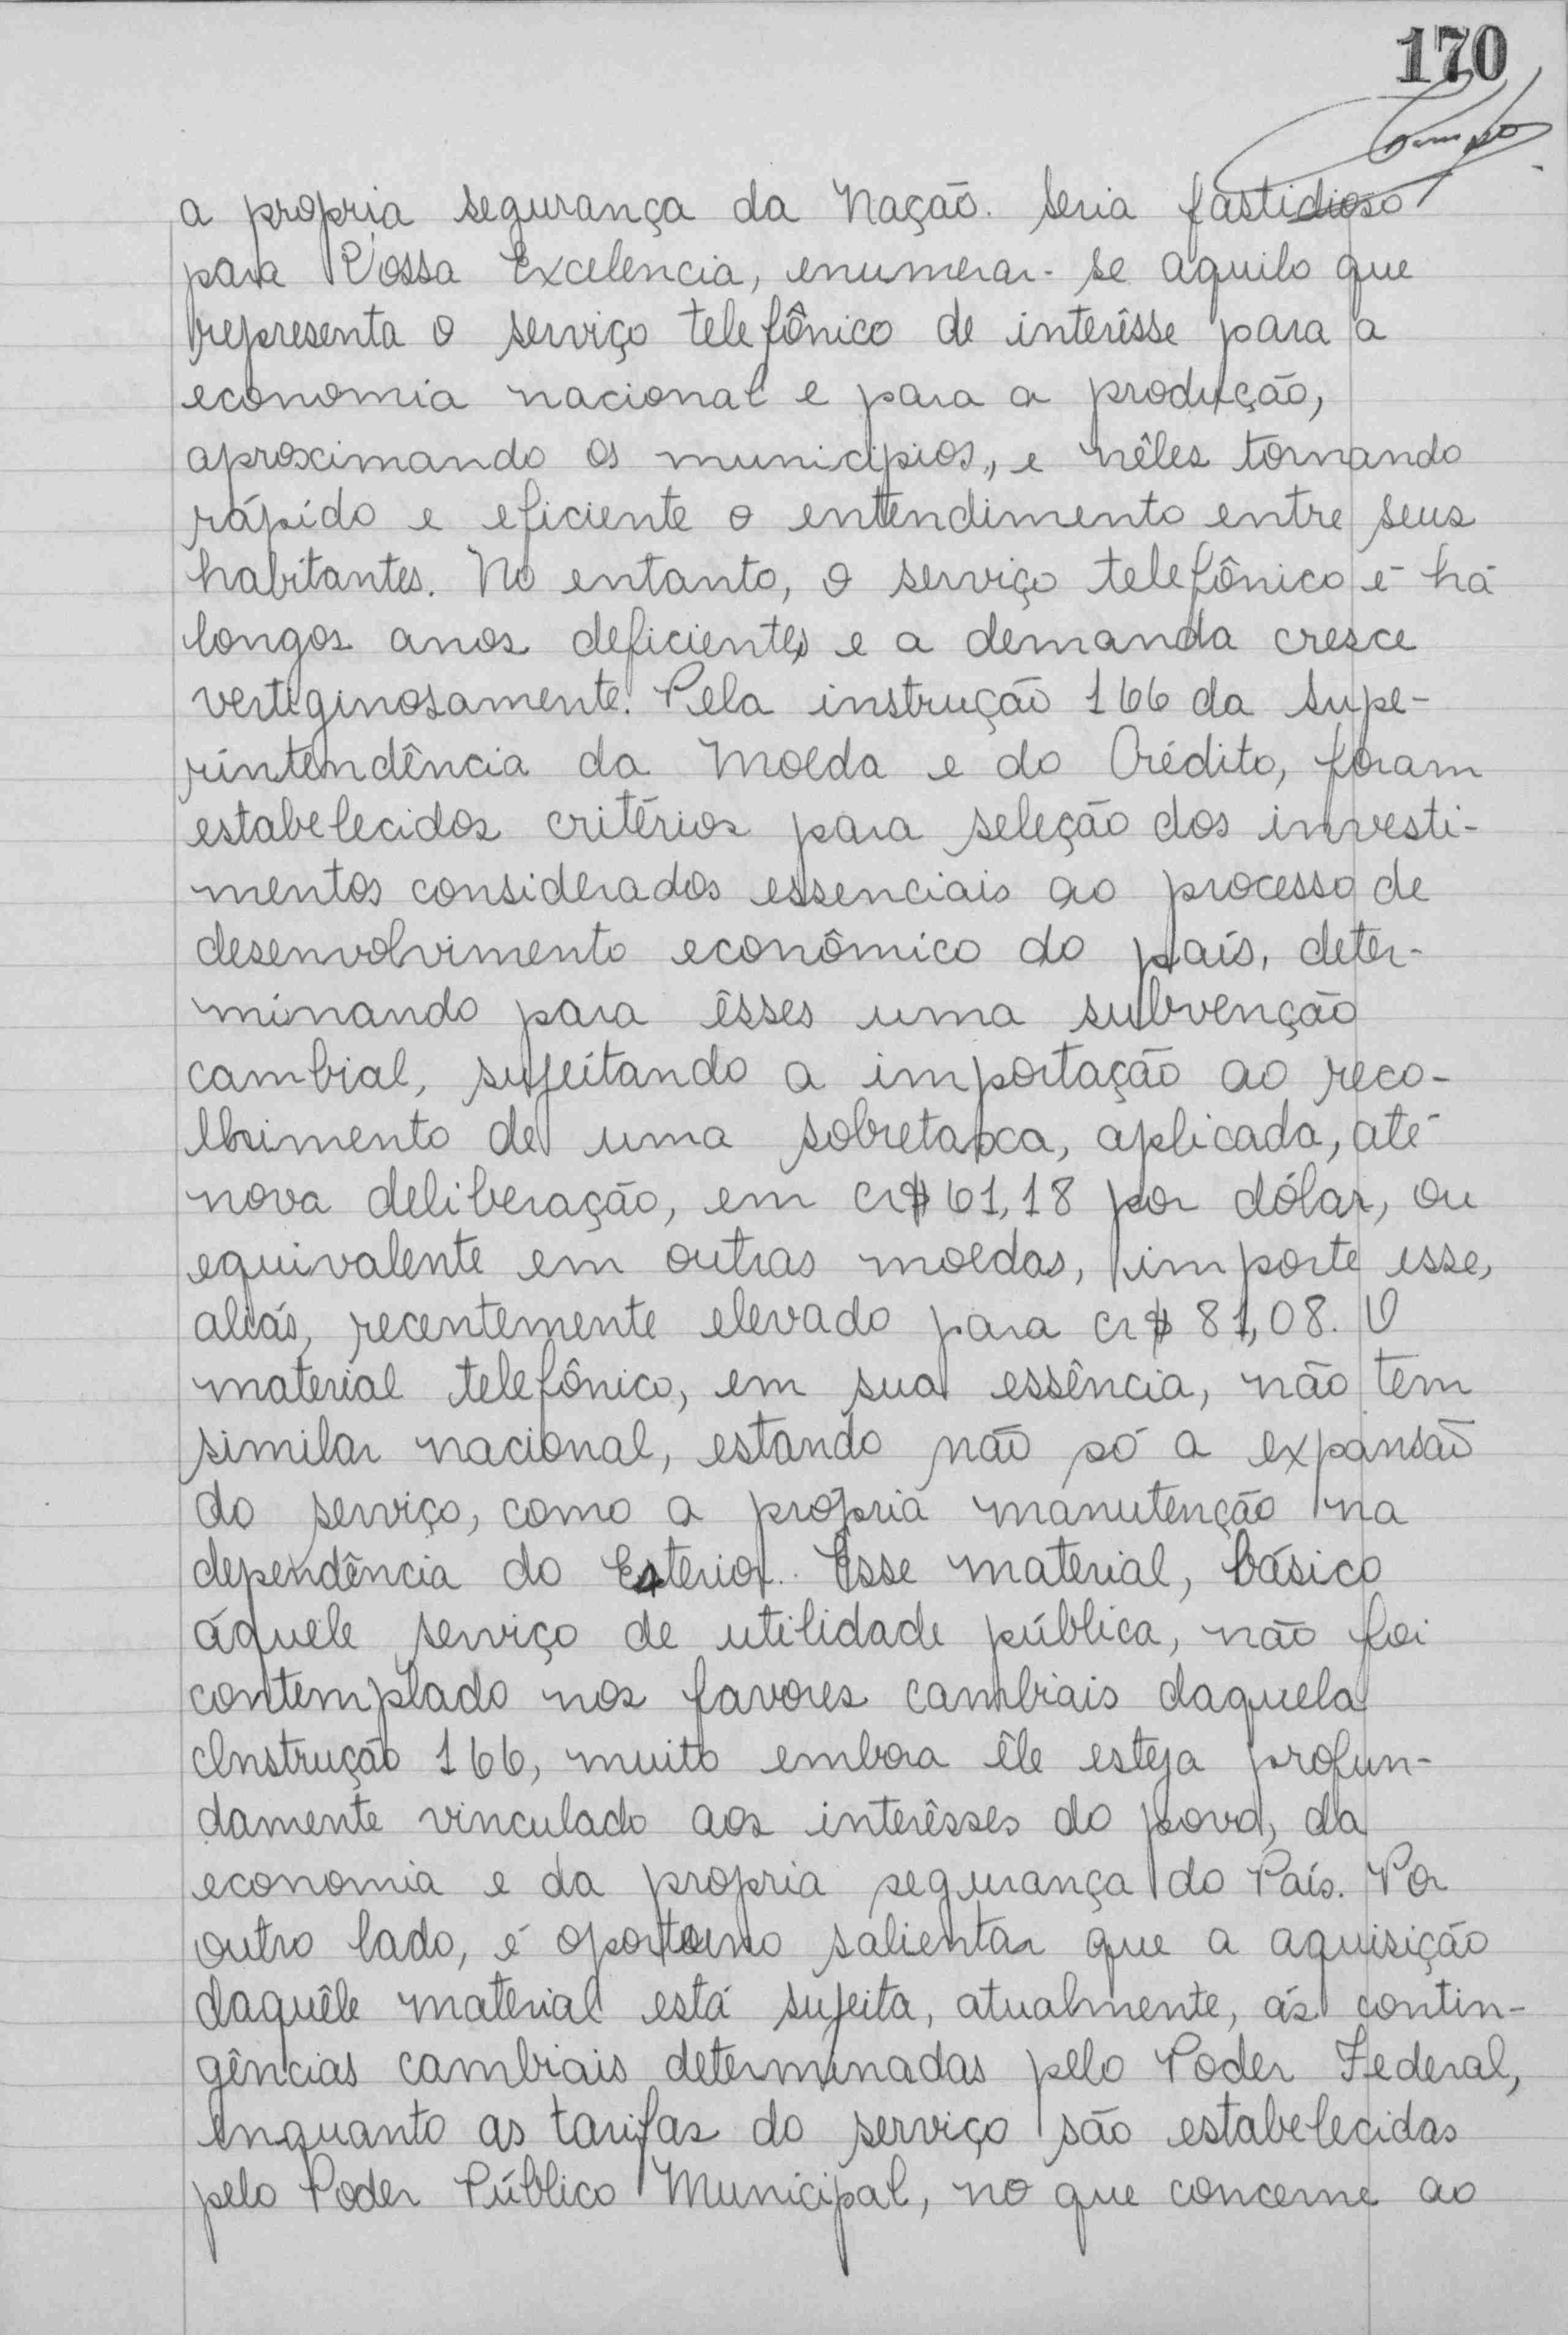 170
a propria segurança da Nação. Seria fastidioso
para Vossa Excelencia, enumerar-se aquilo que
representa o serviço telefônico de interêsse para a
economia nacional e para a produção,
aproximando os municipios, e nêles tornando
rápido e eficiente o entendimento entre seus
habitantes. No entanto, o serviço telefônico é há
longos anos deficiente, e a demanda cresce
vertiginosamente. Pela instrução 166 da Supe-
rintendência da Moeda e do Crédito, foram
estabelecidos critérios para seleção dos investi-
mentos considerados essenciais ao processo de
desenvolvimento econômico do país, deter-
minando para êsses uma subvenção
cambial, sujeitando a importação ao reco-
lhimento de uma sobretaxa, aplicada, até
nova deliberação, em cr$ 61,18 por dólar, ou
equivalente em outras moedas, importe esse,
aliás, recentemente elevado para cr$ 81,08. O
material telefônico, em sua essência, não tem
similar nacional, estando não só a expansão
do serviço, como a própria manutenção na
dependência do Exterior. Êsse material, básico
áquele serviço de utilidade pública, não foi
contemplado nos favores cambiais daquela
Instrução 166, muito embora êle esteja profun-
damente vinculado aos interêsses do povo, da
economia e da propria segurança do País. Por
outro lado, é oportuno salientar que a aquisição
daquêle material está sujeita, atualmente, ás contin-
gências cambiais determinadas pelo Poder Federal,
enquanto as tarifas do serviço são estabelecidas
pelo Poder Público Municipal, no que concerne ao